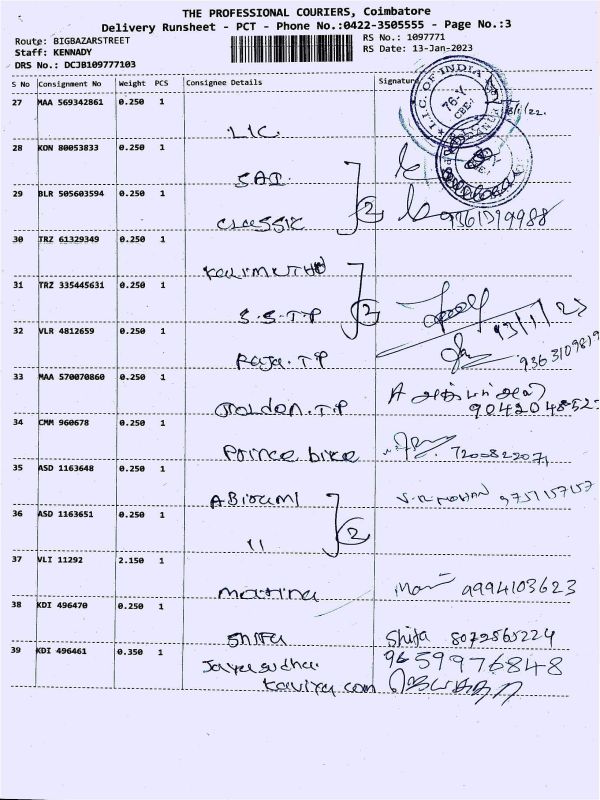 THE PROFESSIONAL COURIERS, Coimbatore
Delivery Runsheet - PCT - Phone No.:0422-3505555 - Page No.:3
Route: BIGBAZARSTREET
Staff: KENNADY
DRS No.: DCJB109777103
RS No.: 1097771
RS Date: 13-Jan-2023
S No Consignment No Weight PCS Consignee Details Signature
27 MAA 569342861 0.250 1
LIC
L.I.C. OF INDIA
76-Y
CBE-1
28 KON 80053833 0.250 1
SAI
29 BLR 505603594 0.250 1
CLASSIC 2
30 TRZ 61329349 0.250 1
31 TRZ 335445631 0.250 1
S.S.TP 2
13/1/23
32 VLR 4812659 0.250 1
Raja.TP
33 MAA 570070860 0.250 1
Golden.T.P
34 CMM 960678 0.250 1
Prince bike
35 ASD 1163648 0.250 1
ABirami
36 ASD 1163651 0.250 1
11 2
37 VLI 11292 2.150 1
9994103623
38 KDI 496470 0.250 1
Shifa Shifa 8072865224
39 KDI 496461 0.350 1
Jayasudha 9659976848